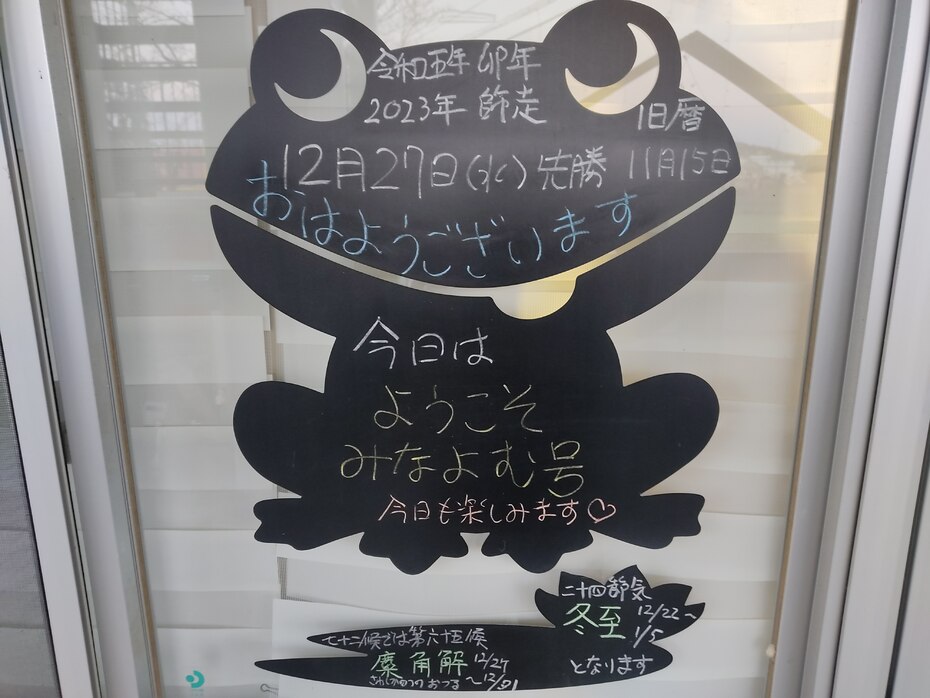 令和五年 卯年
2023年 師走
旧暦
12月27日(水) 先勝 11月15日
おはようございます
今日は
ようこそ
みなよむ号
今日も楽しみます♡
二十四節気
冬至 12/22～1/5
となります
七十二候では第六十五候
麋角解 12/27～12/31
さわしかのつのおつる